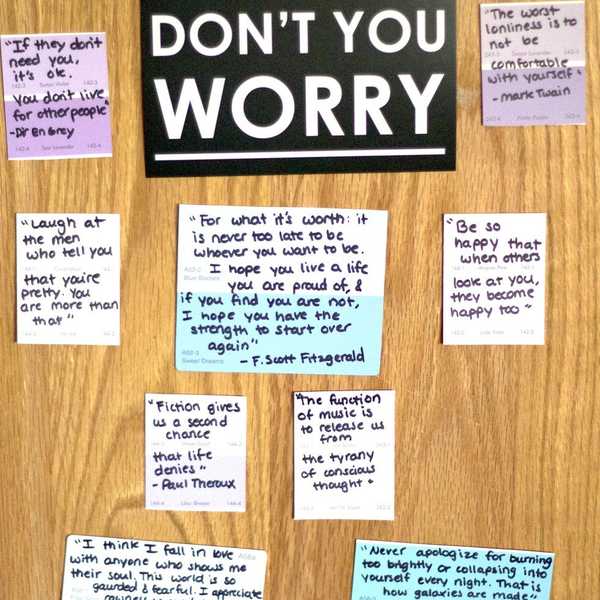 DON'T YOU
WORRY
"If they don't
need you,
it's ok.
142-3 Sweet Violet 142-3
You don't live
for other people"
-Dir En Grey
142-4 142-4
"The worst
lonliness is to
not be
comfortable
with yourself"
- mark Twain
"Laugh at
the men
who tell you
that you're
pretty. You
are more than
that"
"For what it's worth: it
is never too late to be
whoever you want to be.
I hope you live a life
you are proud of, &
if you find you are not,
I hope you have the
strength to start over
again"
Sweet Dreams
- F. Scott Fitzgerald
"Be so
happy that
when others
look at you,
they become
happy too"
"Fiction gives
us a second
chance
that life
denies"
- Paul Theroux
144-4 144-4
"The function
of music is
to release us
from
the tyrany
of conscious
thought"
"I think I fall in love
with anyone who shows me
their soul. This world is so
gaurded & fearful. I appreciate
"Never apologize for burning
too brightly or collapsing into
yourself every night. That is
how galaxies are made"